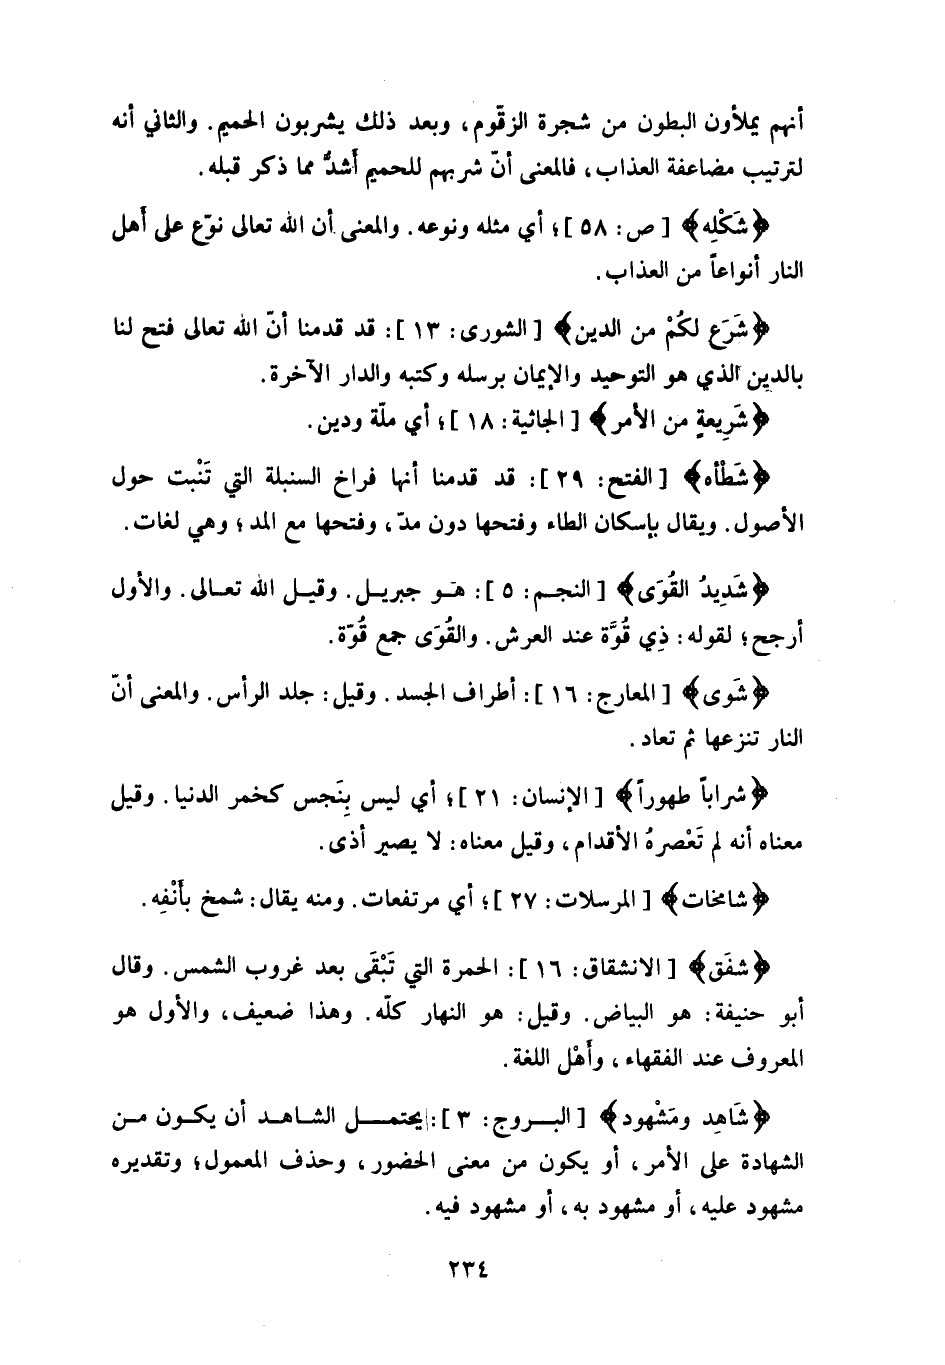 أنهم يملأون البطون من شجرة الزقّوم، وبعد ذلك يشربون الحميم. والثاني أنه
لترتيب مضاعفة العذاب، فالمعنى أنّ شربهم للحميم أَشدُّ مما ذكر قبله.
﴿شَكْلِه﴾ [ ص: ٥٨ ]؛ أي مثله ونوعه. والمعنى أن الله تعالى نوّع على أَهل
النار أنواعاً من العذاب.
﴿شَرَع لكُمْ من الدين﴾ [ الشورى: ١٣ ]: قد قدمنا أنّ الله تعالى فتح لنا
بالدين الذي هو التوحيد والإيمان برسله وكتبه والدار الآخرة.
﴿شَرِيعةٍ من الأمر﴾ [ الجاثية: ١٨ ]؛ أي ملّة ودين.
﴿شَطْأه﴾ [ الفتح: ٢٩ ]: قد قدمنا أنها فراخ السنبلة التي تَنْبت حول
الأصول. ويقال بإسكان الطاء وفتحها دون مدّ، وفتحها مع المد؛ وهي لغات.
﴿شَدِيدُ القُوَى﴾ [ النجم: ٥ ]: هو جبريل. وقيل الله تعالى. والأول
أرجح؛ لقوله: ذِي قُوَّة عند العرش. والقُوَى جمع قُوّة.
﴿شَوى﴾ [ المعارج: ١٦ ]: أطراف الجسد. وقيل: جلد الرأس. والمعنى أنّ
النار تنزعها ثم تعاد.
﴿شراباً طهوراً﴾ [ الإنسان: ٢١ ]؛ أي ليس بِنَجس كخمر الدنيا. وقيل
معناه أنه لم تَعْصرهُ الأقدام، وقيل معناه: لا يصير أذى.
﴿شامخات﴾ [ المرسلات: ٢٧ ]؛ أي مرتفعات. ومنه يقال: شمخ بأَنْفِه.
﴿شفَق﴾ [ الانشقاق: ١٦ ]: الحمرة التي تَبْقَى بعد غروب الشمس. وقال
أبو حنيفة: هو البياض. وقيل: هو النهار كلّه. وهذا ضعيف، والأول هو
المعروف عند الفقهاء، وأَهْل اللغة.
﴿شَاهِد ومَشْهود﴾ [ البروج: ٣ ]: يحتمل الشاهد أن يكون من
الشهادة على الأمر، أو يكون من معنى الحضور، وحذف المعمول؛ وتقديره
مشهود عليه، أو مشهود به، أو مشهود فيه.
٢٣٤